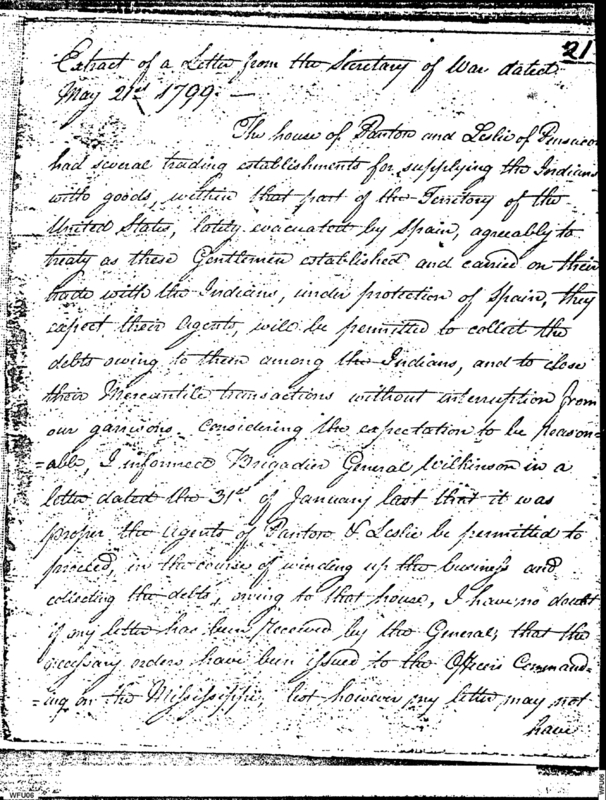 21
Extract of a Letter from the Secretary of War dated
May 21st 1799. —
The house of Panton and Leslie of Pensacon
had several trading establishments for supplying the Indians
with goods, within that part of the Territory of the
United States, lately evacuated by Spain, agreably to
treaty as these Gentlemen established and carried on their
trade with the Indians, under protection of Spain, they
expect their Agents, will be permitted to collect the
debts owing to them among the Indians, and to close
their Mercantile transactions without interruption from
our garrisons. Considering the expectation to be reason=
=able, I informed Brigadier General Wilkinson in a
letter dated the 31st of January last that it was
proper the Agents of Panton & Leslie be permitted to
proceed, in the course of winding up the business and
collecting the debts, owing to that house, I have no doubt
if my letter has been received by the General, that the
necessary orders have been issued to the Officers Command=
=ing on the Mississippi, lest however my letter may not
have
WFU06
WFU06